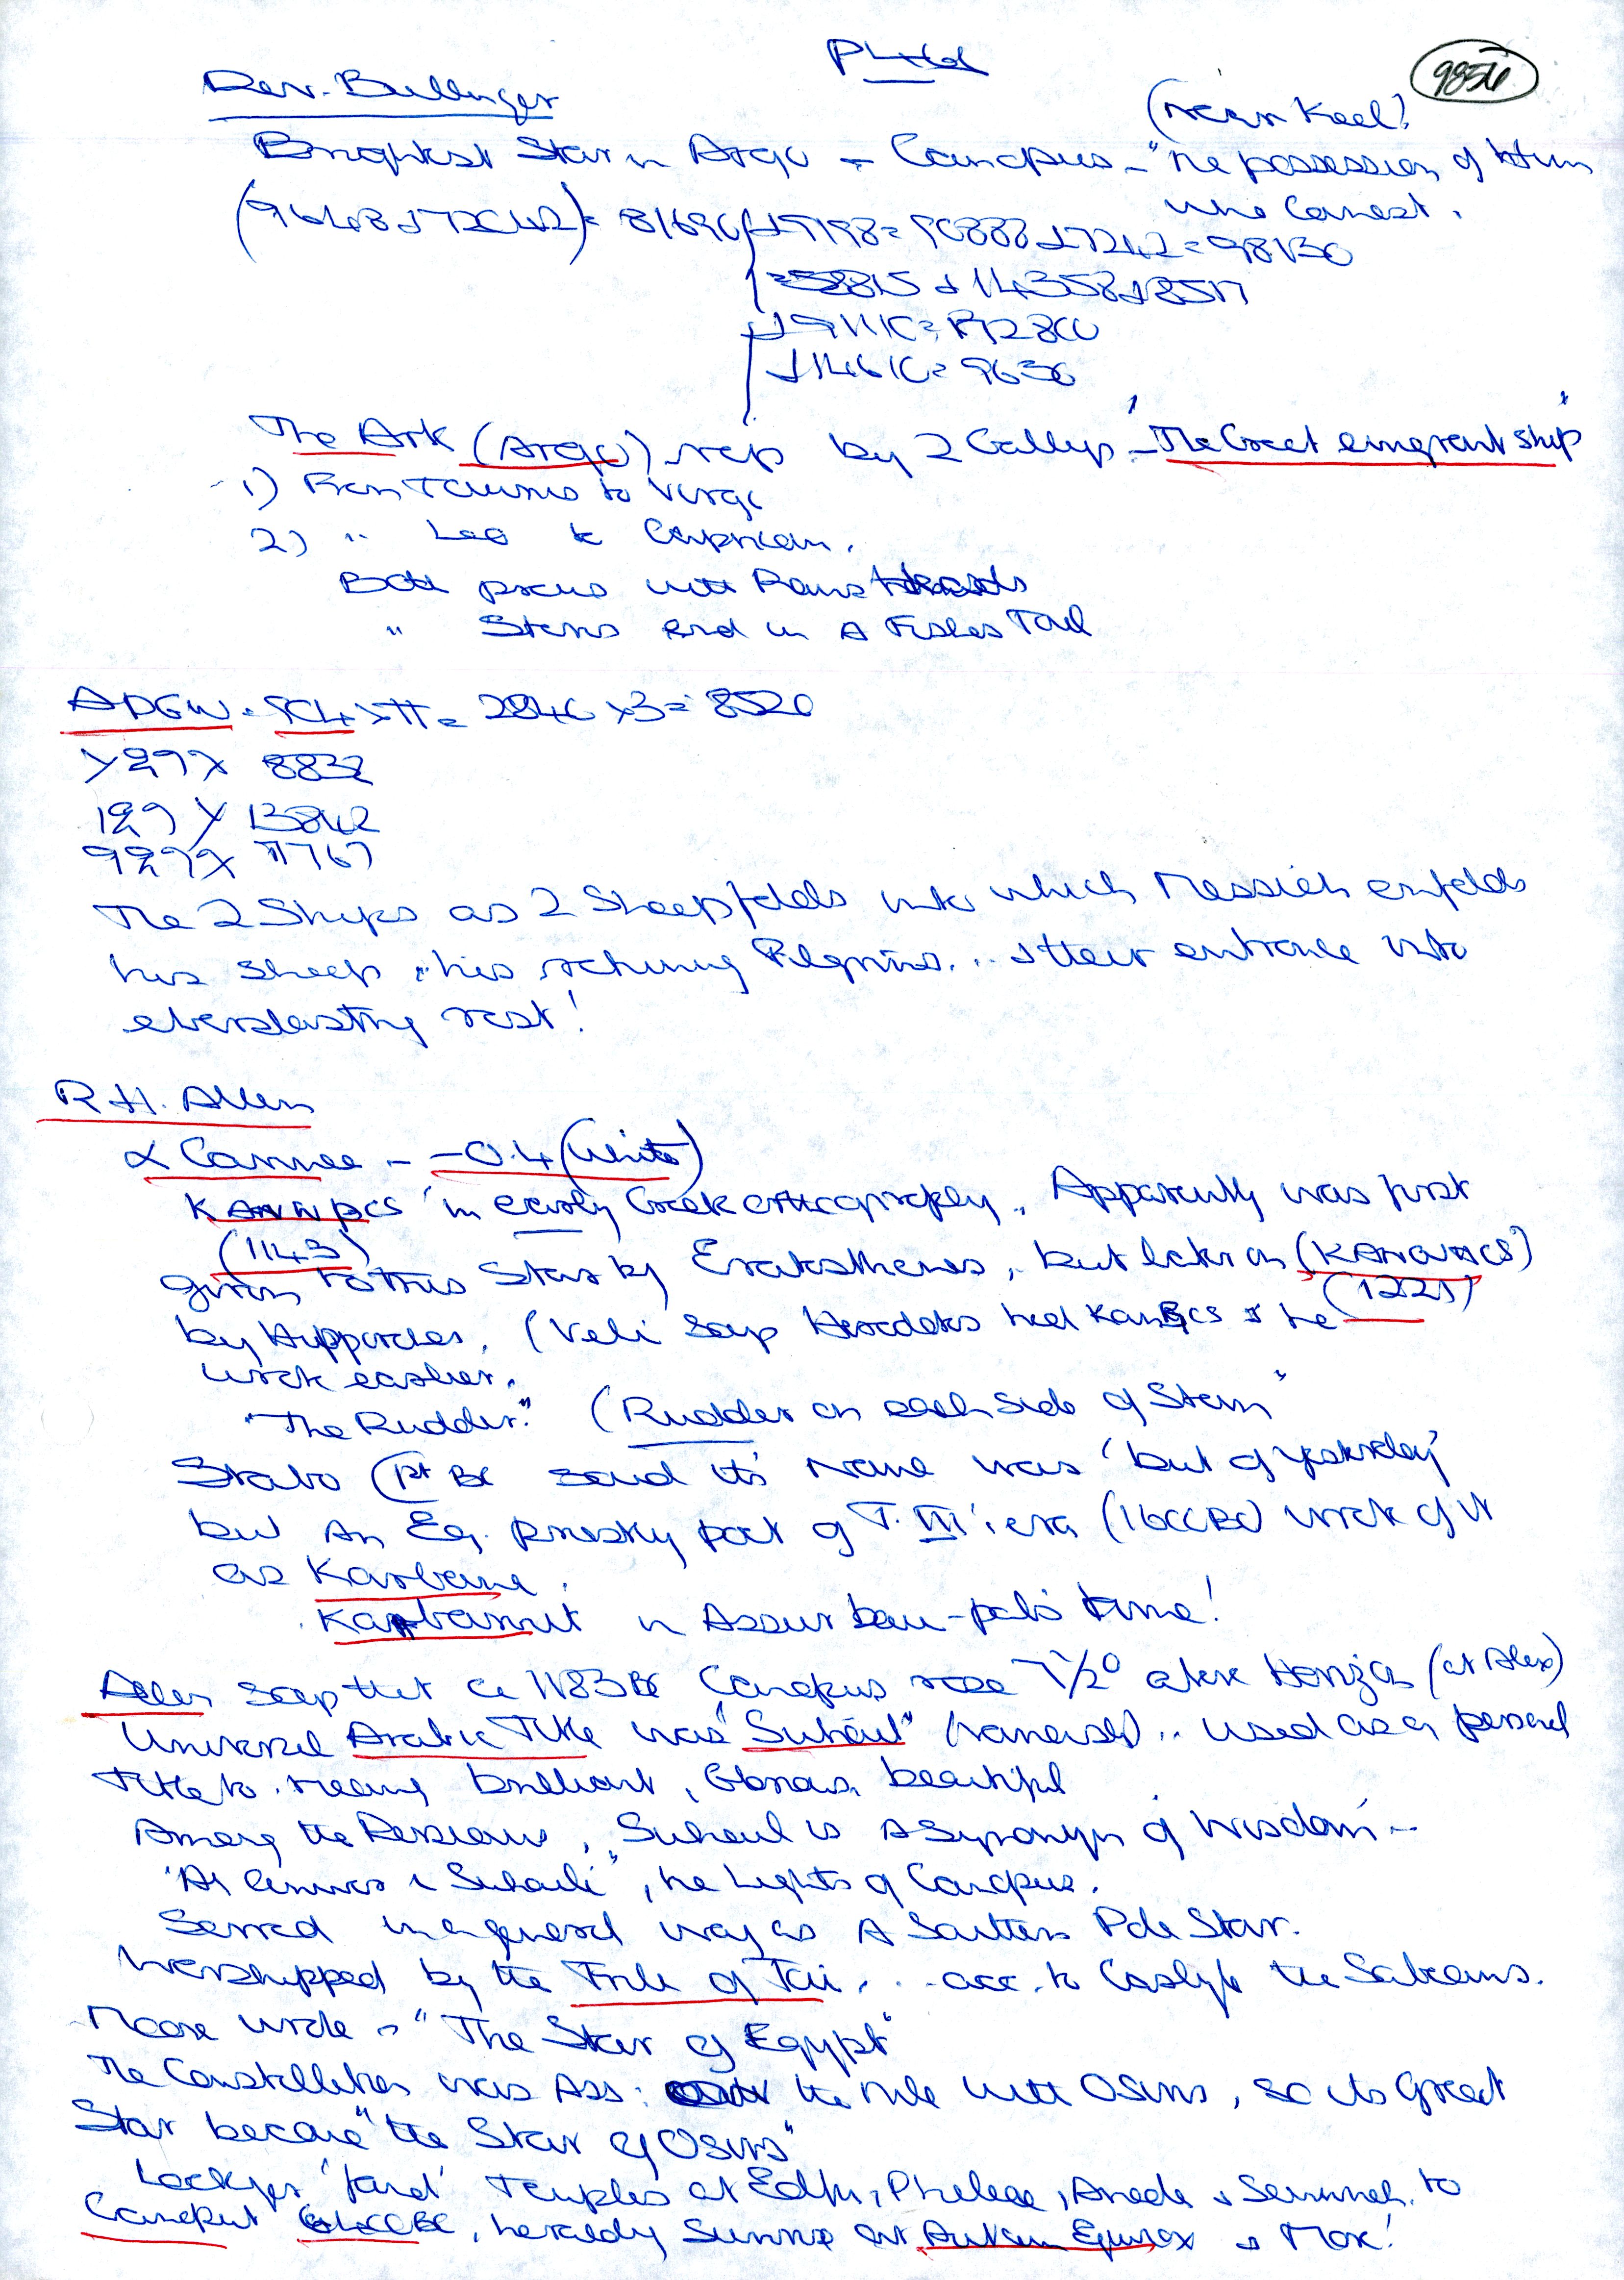 9856
Rev. Bullinger
(near Keel?
Brightest Star in Argo - Canopus - "the possession of Him
who Comest.
(9648 + 72042) = 81690 + 9198 = 90888 + 7242 = 98130
= 58815 + 14358 + 8517
+ 91110 = 172800
+ 14610 = 9630
The Ark (Argo) rep by 2 Galleys - 'The Great emigrant ship'
1) From Taurus to Virgo
2) " Leo to Capricorn.
Both prows with Rams Heads
" Sterns end in A Fishes Tail
ADGW = 904 × π = 2840 × 3 = 8520
8832
13842
π 767
The 2 Ships as 2 Sheepfolds into which Messiah enfolds
his sheep, his returning Pilgrims... & their entrance into
everlasting rest!
R.H. Allen
α Carinae - -0.4 (White)
in early Greek orthography. Apparently was first
(1143)
given to this Star by Eratosthenes, but later on (KANWΠOS)
(1221)
by Hipparchos. (Veli says Herodotos had Kanobos & he
wrote earlier.
"The Rudder." (Rudder on each side of Stern"
Strabo (1st BC said its Name was 'but of yesterday'
but An Eg. priestly poet of T. III's era (1600 BC) wrote of it
as Karbana.
Karbanit in Assurbani-pal's time!
Allen says that ca 1183 BC Canopus rose 7½° above Horizon (at Alex)
Universal Arabic Title was "Suhail" .. used as a personal
Title to. meaning brilliant, Glorious, beautiful
Among the Persians, Suhail is A Synonym of Wisdom -
"Al Anwar i Suhaili", the Lights of Canopus.
Served in a general way as A Southern Pole Star.
Worshipped by the Tribe of Tai... acc. to Carlyle the Sabeans.
Moore wrote - "The Star of Egypt"
The Constellation was Ass: the rule with Osiris, so its Great
Star became "the Star of Osiris"
Lockyer 'found' Temples at Edfu, Philae, Amada & Semneh, to
Canopus 6400 BC, heralding Sunrise at Autumn Equinox